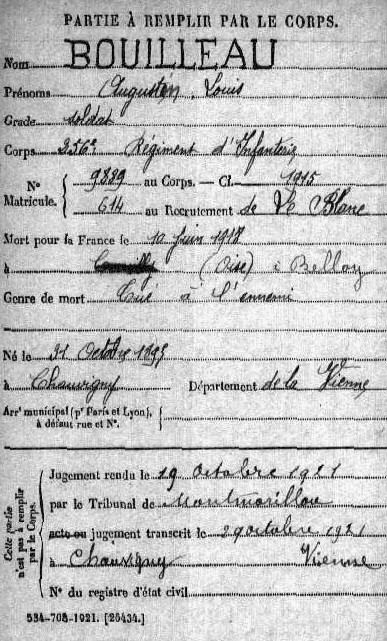 PARTIE À REMPLIR PAR LE CORPS.
Nom BOUILLEAU
Prénoms Augustin, Louis
Grade soldat
Corps 356e Régiment d'Infanterie
N° Matricule. { 9889 au Corps. — Cl. 1915
614 au Recrutement de Le Blanc
Mort pour la France le 12 Juin 1918
à (Oise) à Belloy
Genre de mort Tué à l'ennemi
Né le 31 Octobre 1895
à Chauvigny Département de la Vienne
Arrt municipal (pr Paris et Lyon),
à défaut rue et N°.
Cette partie
n'est pas à remplir
par le Corps.
Jugement rendu le 19 octobre 1921
par le Tribunal de Montmorillon
acte ou jugement transcrit le 29 octobre 1921
à Chauvigny Vienne
N° du registre d'état civil
534-708-1921. [26434.]